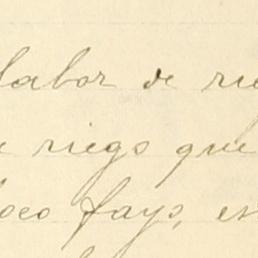 labor de rie
riego que
loco fayo, es